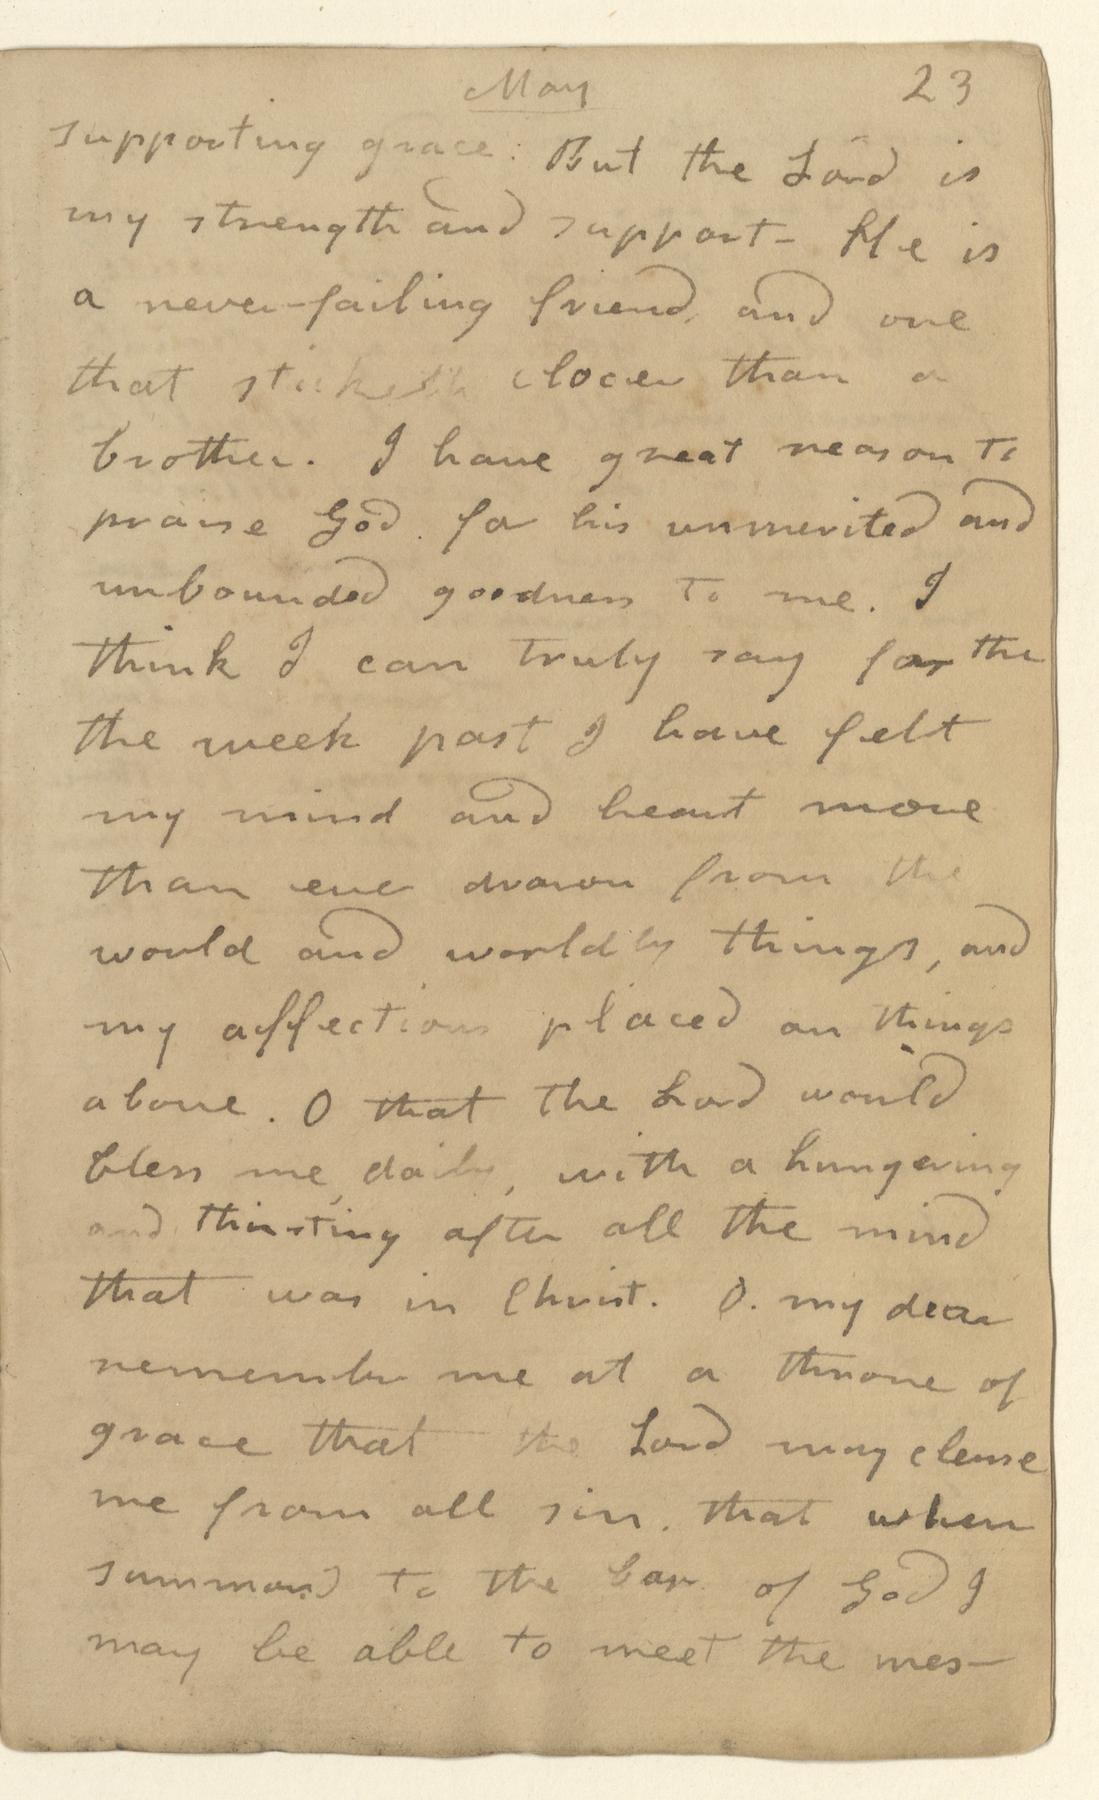 May 23
supporting grace. But the Lord is
my strength and support - He is
a never-failing friend, and one
that sticketh closer than a
brother. I have great reason to
praise God. for his unmerited and
unbounded goodness to me. I
think I can truly say for the
the week past I have felt
my mind and heart more
than ever drawn from the
would and worldly things, and
my affections placed on things
above. O that the Lord would
bless me, daily, with a hungering
and thirsting after all the mind
that was in Christ. O. my dear
remember me at a throne of
grace that the Lord may clense
me from all sin. that when
summond to the bar of God I
may be able to meet the mes-